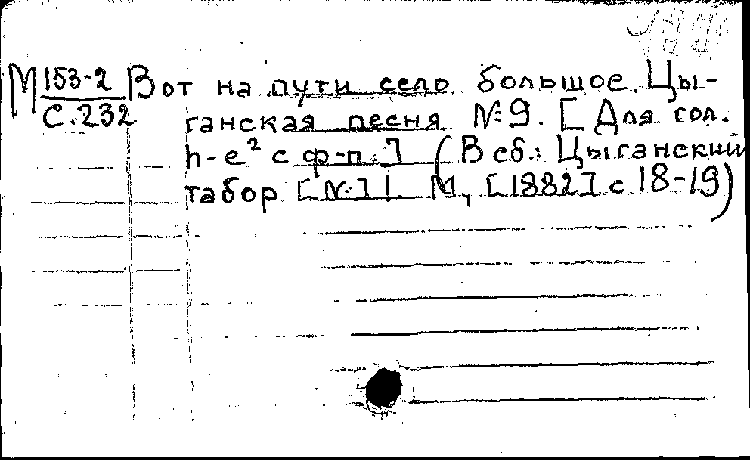 М 153-2 Вот на пути село большое. Цы-
С.232 ганская песня №9. [Для гол.
h-e² с ф-п.] (В сб.: Цыганский
табор [№] 1. М., [1882] с 18-19)